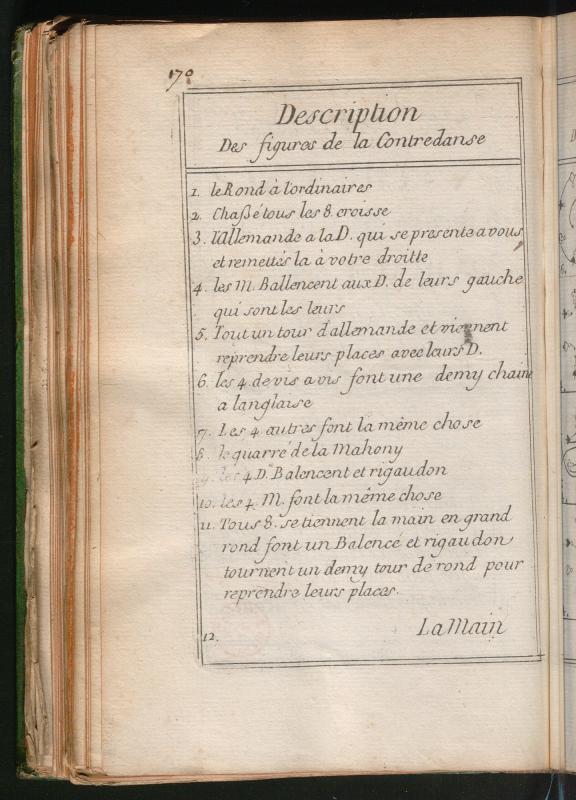 170
Description
Des figures de la Contredanse
1. le Rond à l'ordinaires
2. Chaßé tous les 8. croisse
3. l'allemande a la D. qui se presente a vous
et remettés la à votre droitte
4. les M. Ballencent aux D. de leurs gauche
qui sont les leurs
5. Tout un tour d'allemande et viennent
reprendre leurs places avec leurs D.
6. les 4. de vis a vis font une demy chaine
a langlaise
7. Les 4 autres font la même chose
8. le quarré de la Mahony
9. les 4 D. Balencent et rigaudon
10. les 4. M. font la même chose
11. Tous 8. se tiennent la main en grand
rond font un Balencé et rigaudon
tournent un demy tour de rond pour
reprendre leurs places.
12. La Main